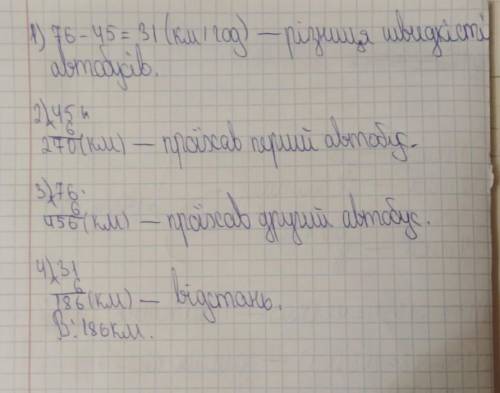 1) 76-45=31 (км/год) — різниця швидкісті
автобусів.
2) x45
6
270(км) — проїхав перший автобус.
3) x76
6
456(км) — проїхав другий автобус.
4) x31
6
186(км) — відстань.
В: 186км.